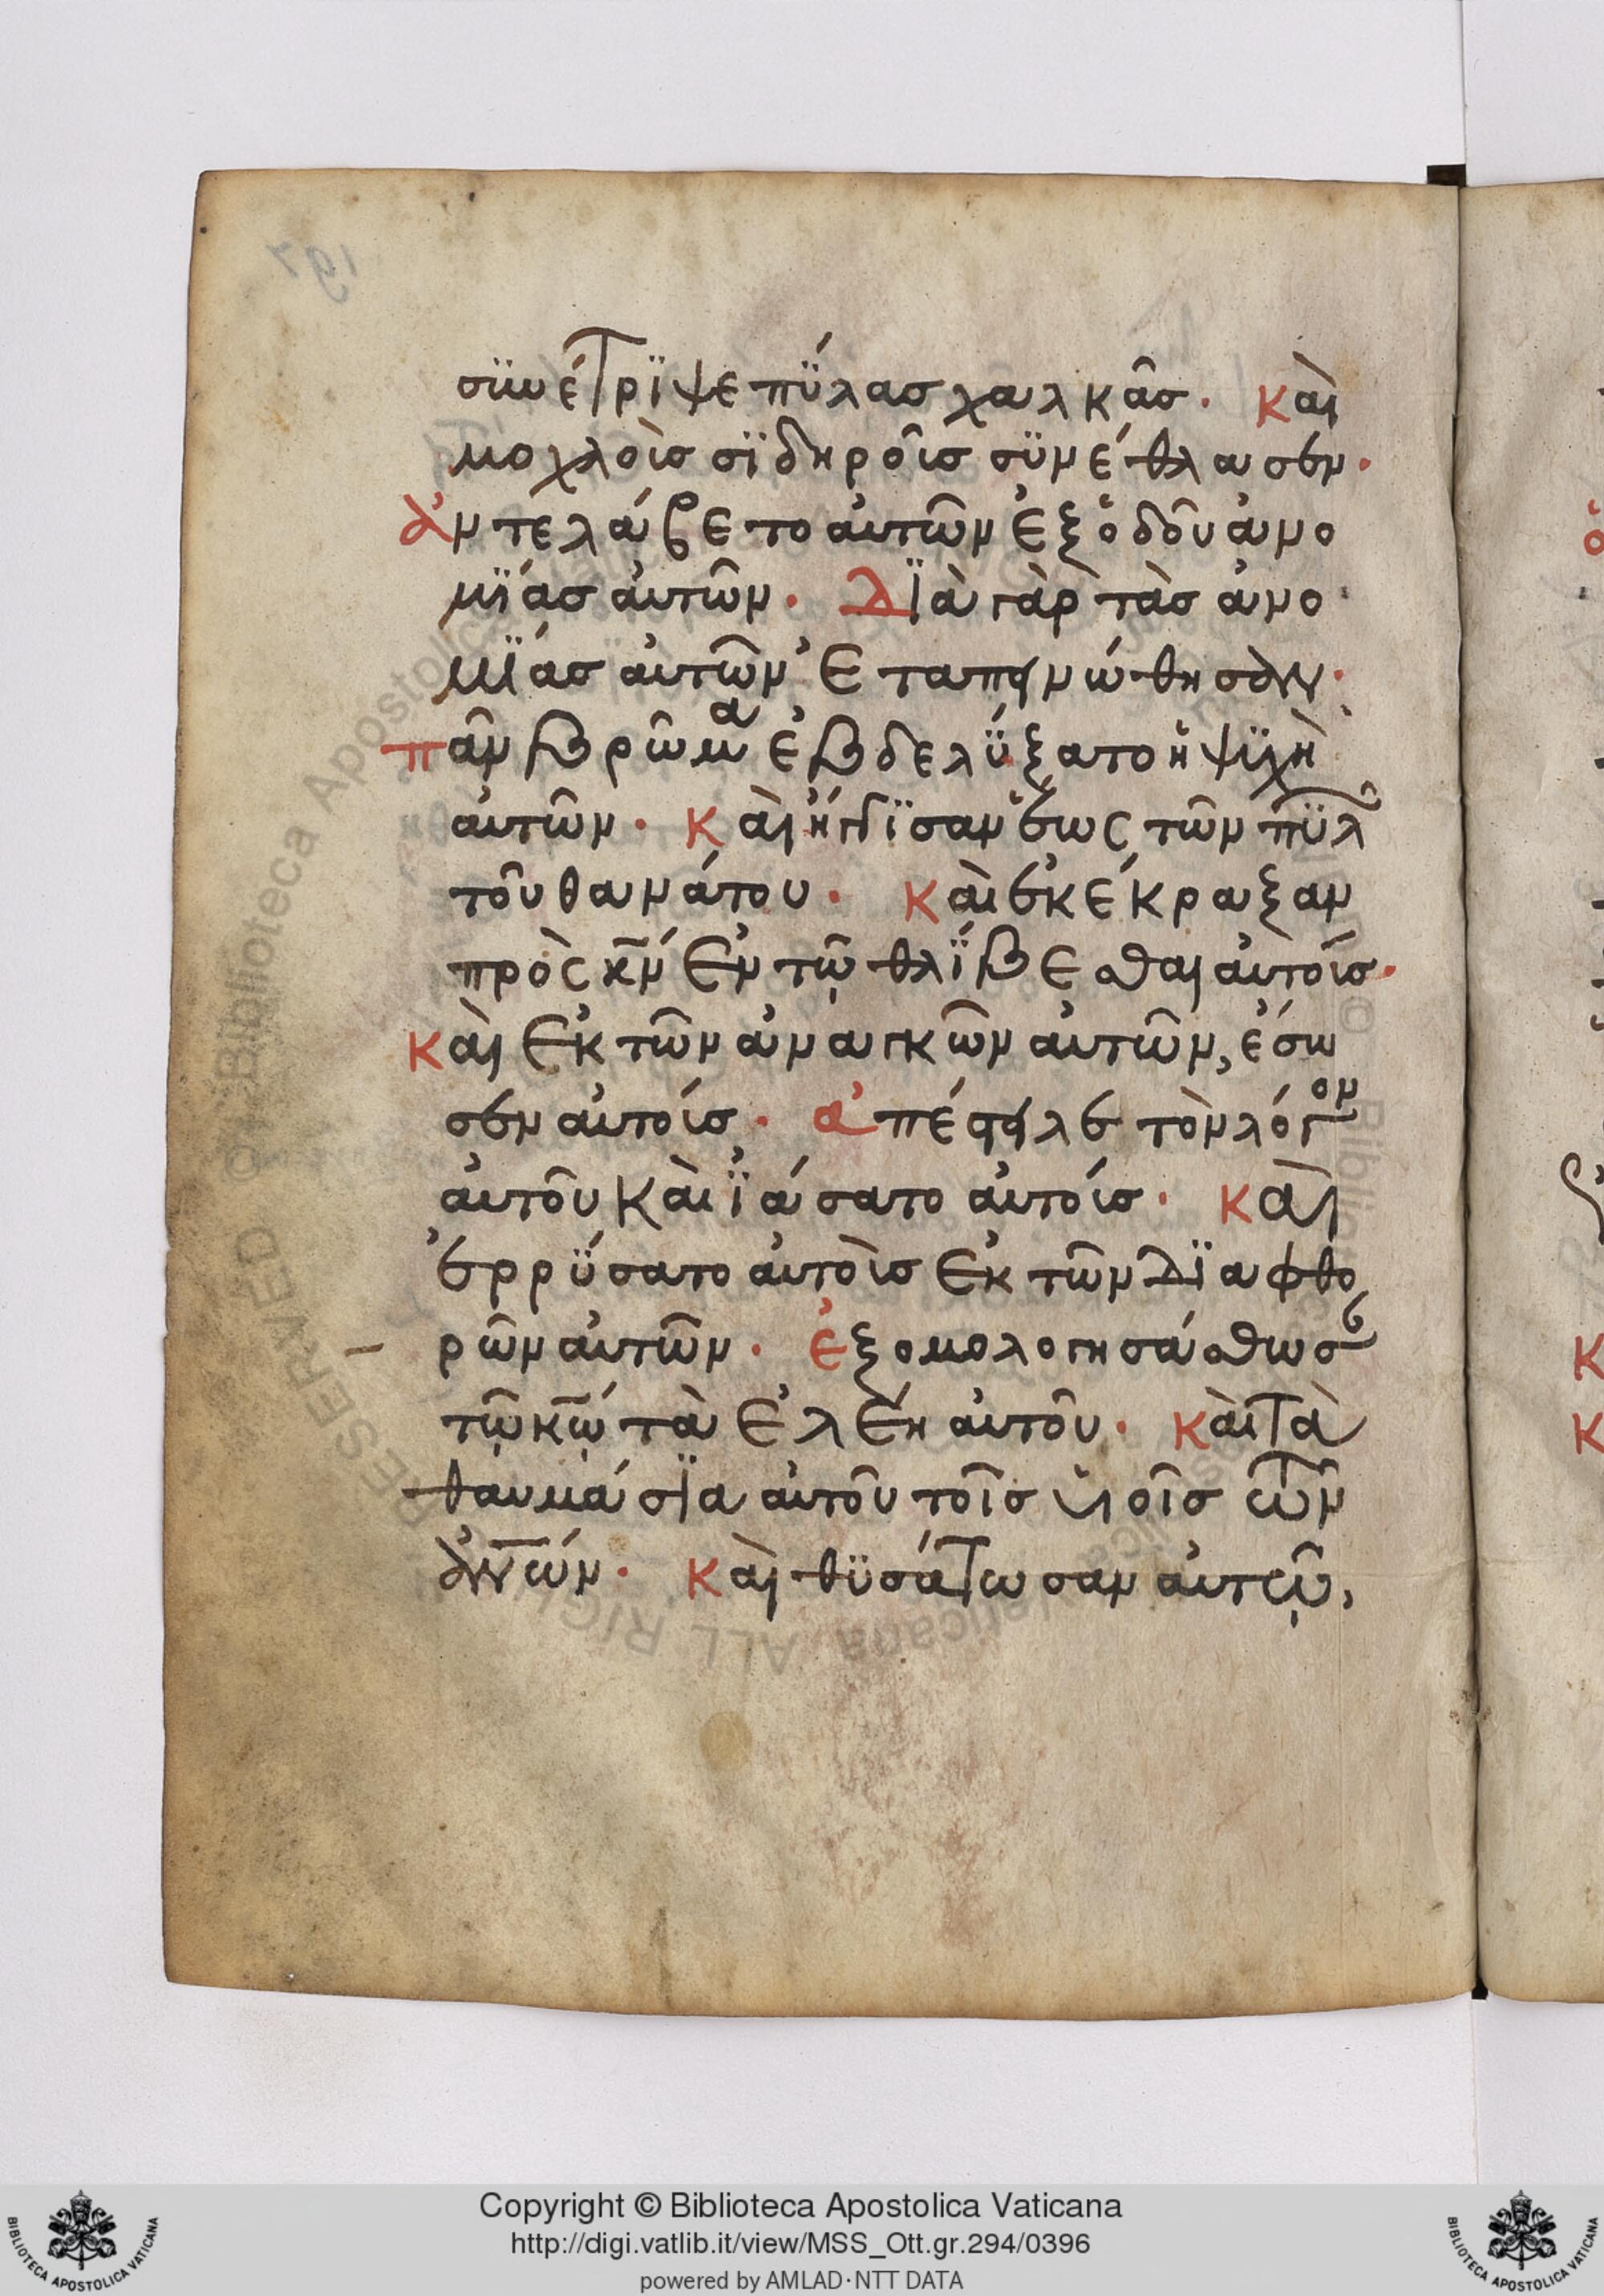 συνέτριψε πύλας χαλκᾶς· καὶ
μοχλοὺς σϊδηροῦς συνέθλασεν·
ἀντελάβετο αὐτῶν ἐξ ὁδοῦ ἀνο
μίας αὐτῶν· Διὰ γὰρ τὰς ἀνο
μίας αὐτῶν ἐταπεινώθησαν·
πᾶν βρῶμα ἐβδελύξατο ἡ ψυχὴ
αὐτῶν· καὶ ἤγγισαν ἕως τῶν πυλῶν
τοῦ θανάτου· καὶ ἐκέκραξαν
πρὸς κν̄ ἐν τῷ θλίβεσθαι αὐτούς·
καὶ ἐκ τῶν ἀναγκῶν αὐτῶν, ἔσω
σεν αὐτούς· ἀπέστειλε τὸν λόγον
αὐτοῦ καὶ ϊάσατο αὐτούς· καὶ
ἐρρύσατο αὐτοὺς ἐκ τῶν διαφθο
ρῶν αὐτῶν· ἐξομολογησάσθωσ
τῷ κω̄ τὰ ἐλέη αὐτοῦ· καὶ τὰ
θαυμάσια αὐτοῦ τοῖς υἱοῖς τῶν
ἀνω̄ν· καὶ θυσάτωσαν αὐτῷ,
197
Copyright © Biblioteca Apostolica Vaticana
http://digi.vatlib.it/view/MSS_Ott.gr.294/0396
powered by AMLAD·NTT DATA
BIBLIOTECA APOSTOLICA VATICANA
BIBLIOTECA APOSTOLICA VATICANA